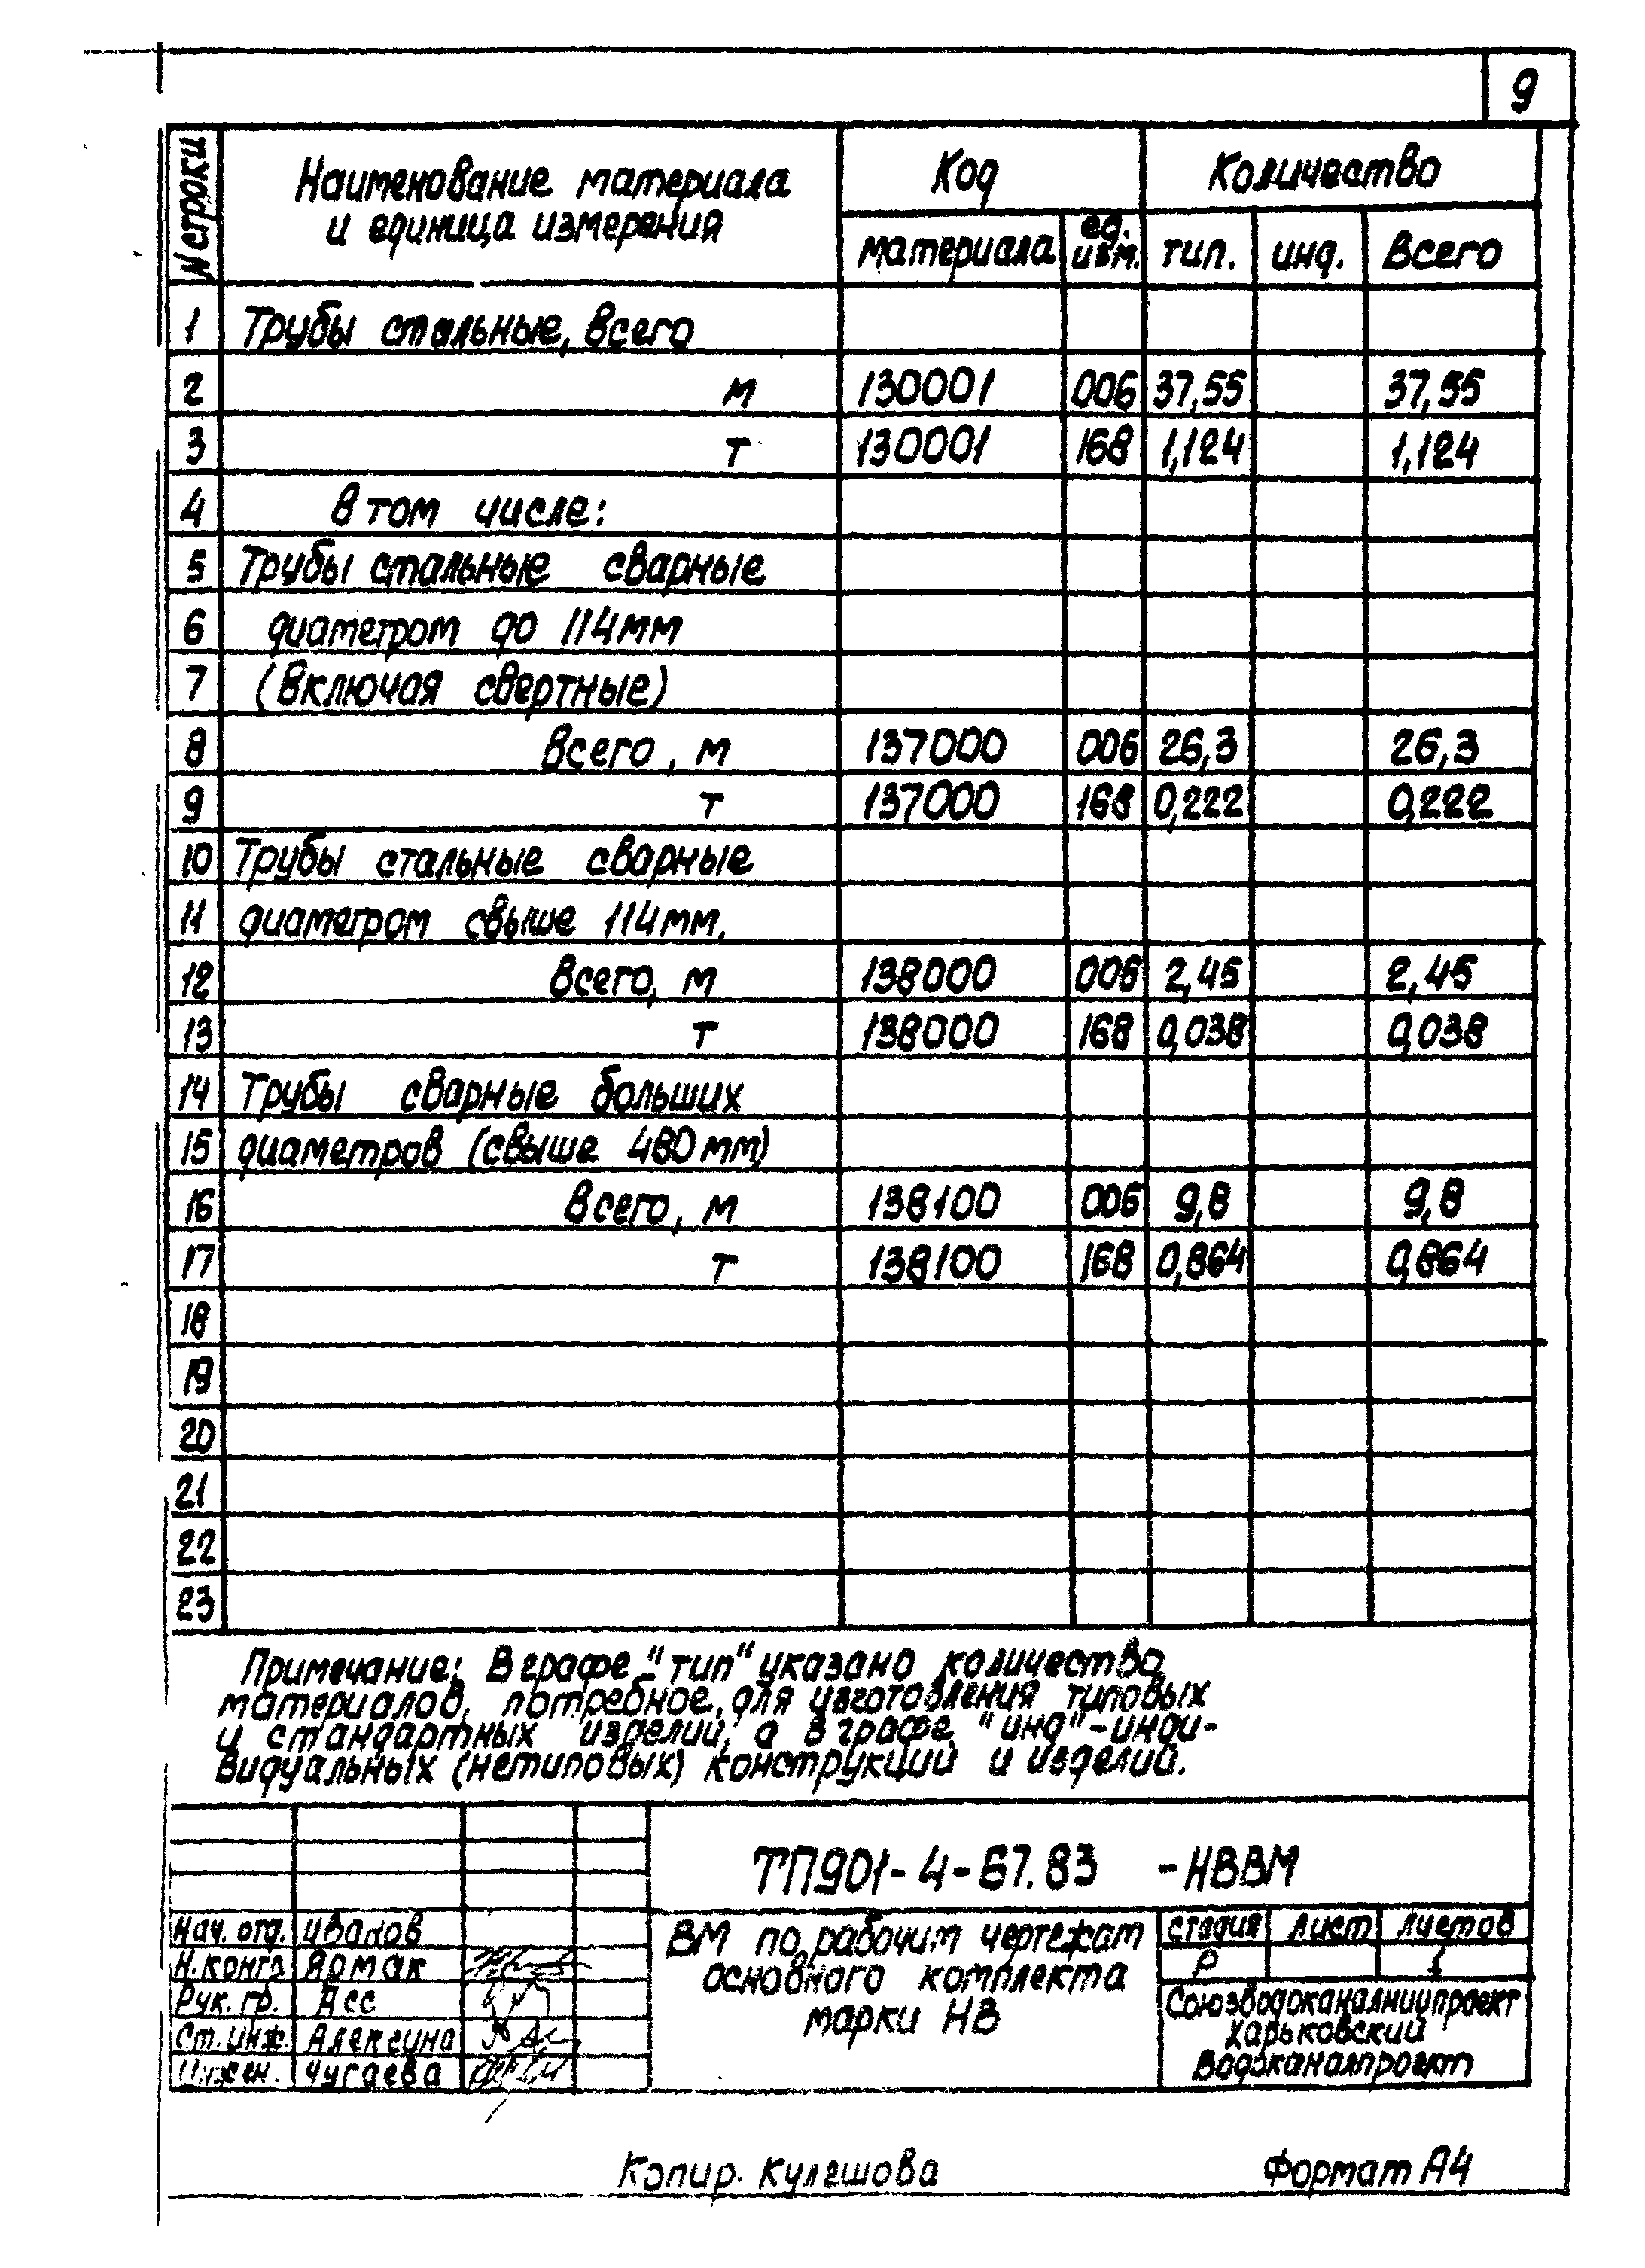 9
N строки
Наименование материала
и единица измерения
Код
Количество
материала
ед.
изм.
тип.
инд.
Всего
1 Трубы стальные, всего
2 м 130001 006 37,55 37,55
3 т 130001 168 1,124 1,124
4 в том числе:
5 Трубы стальные сварные
6 диаметром до 114мм
7 (включая свертные)
8 всего, м 137000 006 26,3 26,3
9 т 137000 168 0,222 0,222
10 Трубы стальные сварные
11 диаметром свыше 114мм.
12 всего, м 138000 006 2,45 2,45
13 т 138000 168 0,038 0,038
14 Трубы сварные больших
15 диаметров (свыше 480мм)
16 всего, м 138100 006 9,8 9,8
17 т 138100 168 0,864 0,864
18
19
20
21
22
23
Примечание: В графе "тип" указано количество
материалов, потребное для изготовления типовых
и стандартных изделий, а в графе "инд"-инди-
видуальных (нетиповых) конструкций и изделий.
ТП901-4-67.83 -НВВМ
Нач. отд. Иванов
Н.контр. Ярмак
Рук. гр. Асс
Ст. инж. Алексина
Инжен. Чугаева
ВМ по рабочим чертежам
основного комплекта
марки НВ
стадия лист листов
Р 1
Союзводоканалниипроект
Харьковский
Водоканалпроект
Копир. Кулешова
Формат А4